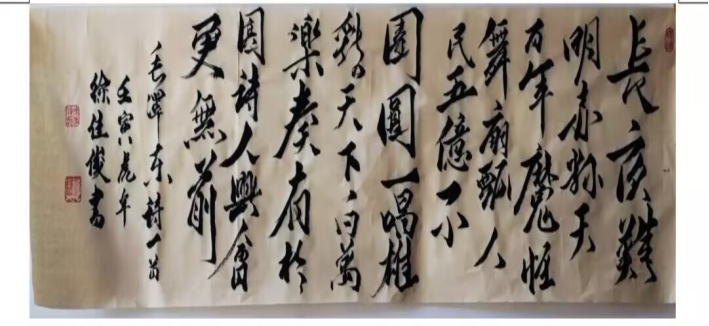 長夜難
明赤縣天
百年魔怪
舞翩躚人
民五億不
團圓一唱雄
雞天下白萬
樂奏有於
闐詩人興會
更無前
毛澤東詩一首
壬寅虎年
徐佳俊書